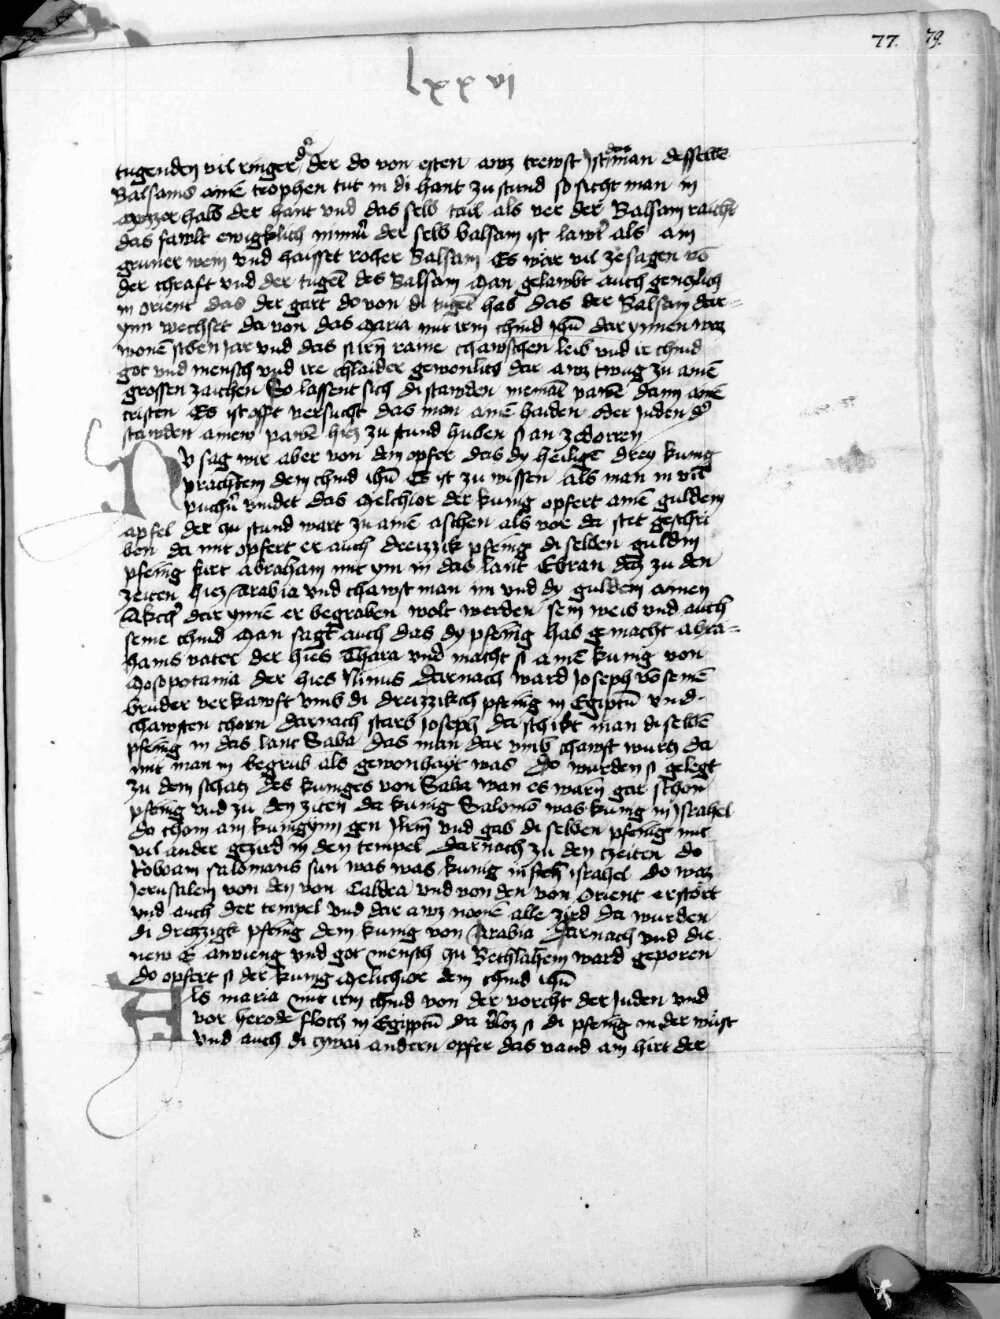 77. 79.
lxxvi
tugenden vil ringer der do von esten awz trewst Ist das man desselbē
Balsams ainē trophen tut in di hant zu stund so sicht man in
awzzerhalb der hant vnd das selb tail als ver der Balsam raicht
das fawlt ewigklich nimm̄ der selb balsam ist lawt̄ als am
gruner wein vnd haisset roher Balsam Es wär vil ze sagen vō
der chraft vnd der tugēt des Balsam Man gelawbt auch genczlich
in orient das der gart do von di tugēt hab das der Balsam dar=
ynn wechset da von das Maria mit irm chind ihū dar ynnen waz
wonē siben Jar vnd das si irn raine chawschen leib vnd ir chind
got vnd mensch vnd ire chlaider gewonlich dar awz twug zu ainē
grossen zaichen So lassent sich di stawden niemāt pawē dann ainē
cristen Es ist offt versucht das man ainē haiden oder Juden d̄
stawden ainew pawē hiez zu stund huben si an ze dorren
Nv sag wir aber von dem opfer das dy heiligē drey kunig
prachtem dem chind ihū Es ist zu wissen als man in vil
puchn̄ vindet das Melchior der kunig opfert ainē guldein
apfel der zu stund wart zu ainē aschen als vor da stet geschri
ben da mit opfert er auch dreizzik pfening di selben guldin
pfening furt Abraham mit ym in das lant Ebran daz zu den
zeiten hiez Arabia vnd chawft man im vnd dy guldein ainen
Akch̄ dar ynnē er begraben wolt werden sein weib vnd auch
seine chind Man sagt auch das dy pfenīg hab gemacht abra=
hams vater der hies Thara vnd macht si ainē kunig von
Mosopotania der hies Ninus Darnach ward Joseph vō seinē
bruder verkawft vmb di dreizzikch pfenīg in Egiptū vnd
chawften chorn Darnach starb Joseph da schikt man di selbē
pfenīg in das lant Saba das man dar vmb chawft wurtz da
mit man in begrub als gewonhayt was do wurden si gelegt
zu dem schatz des kuniges von Saba wan es warn gar schon
pfenīg vnd zu den ziten da kunig Salomō was kunig in Israhel
do chom ain kunigynn gen Jrlm̄ vnd gab di selben pfenīg mit
vil ander gezird in den tempel Darnach zu den czeiten do
Roboam salomons sun was was kunig in israhel do waz
Jerusalem von den von Caldea vnd von den von Orient erstört
vnd auch der tempel vnd dar awz nomē alle zird da wurden
di dreizzigk pfenīg dem kunig von Arabia Darnach vnd die
new E anvieng vnd got mensch zu Bethlahem ward geporen
do opfert si der kunig Melichior dem chind ihū
Als maria mit irm chind von der vorcht der Juden vnd
vor herode floch in Egipptū da v̄loz si di pfenīg in der wüst
vnd auch di czwai andern opfer das vand ain hirt der